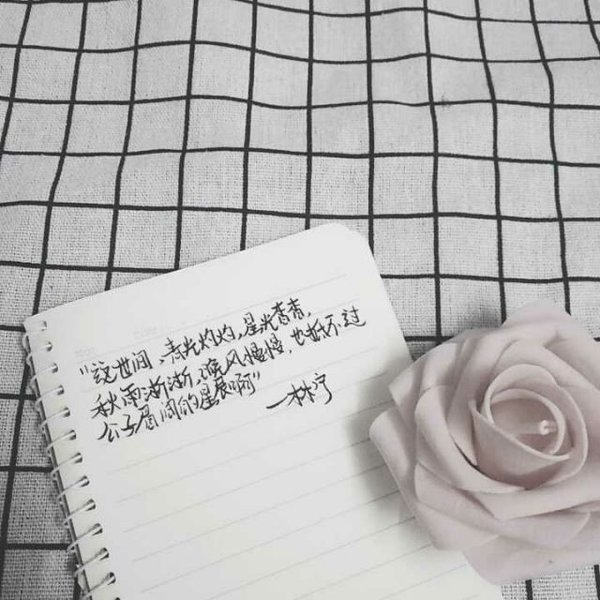 “说世间，青光灼灼，星光杳杳，
秋雨淅淅，晚风慢慢，也抵不过
公子眉间的星辰啊”
一林宁